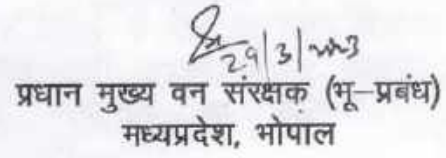 29/3/2023
प्रधान मुख्य वन संरक्षक (भू–प्रबंध)
मध्यप्रदेश, भोपाल